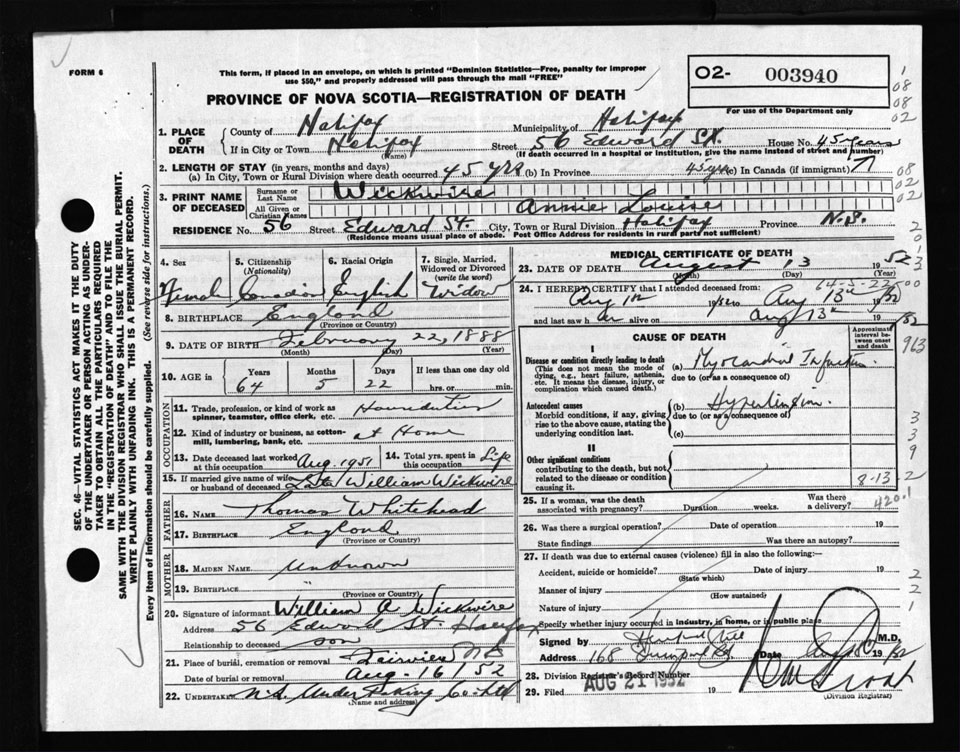 FORM 6
This form, if placed in an envelope, on which is printed "Dominion Statistics—Free, penalty for improper
use $50," and properly addressed will pass through the mail "FREE"
PROVINCE OF NOVA SCOTIA—REGISTRATION OF DEATH
02- 003940
For use of the Department only
1. PLACE OF DEATH
County of Halifax Municipality of Halifax
If in City or Town Halifax (Name) Street 56 Edward St. House No. 45 years
(If death occurred in a hospital or institution, give the name instead of street and number)
2. LENGTH OF STAY (in years, months and days)
(a) In City, Town or Rural Division where death occurred 45 yrs (b) In Province 45 yrs (c) In Canada (if immigrant)
3. PRINT NAME OF DECEASED
Surname or Last Name Wickwire
All Given or Christian Names Annie Louise
RESIDENCE No. 56 Street Edward St. City, Town or Rural Division Halifax Province N.S.
(Residence means usual place of abode. Post Office Address for residents in rural parts not sufficient)
4. Sex Female
5. Citizenship (Nationality) Canadian
6. Racial Origin English
7. Single, Married, Widowed or Divorced (write the word) Widow
8. BIRTHPLACE England
(Province or Country)
9. DATE OF BIRTH February 22, 1888
(Month) (Day) (Year)
10. AGE in Years 64 Months 5 Days 22 If less than one day hrs. or min.
OCCUPATION
11. Trade, profession, or kind of work as spinner, teamster, office clerk, etc. Houseduties
12. Kind of industry or business, as cotton-mill, lumbering, bank, etc. at Home
13. Date deceased last worked at this occupation Aug. 1951
14. Total yrs. spent in this occupation Life
15. If married give name of wife or husband of deceased Late William Wickwire
FATHER
16. NAME Thomas Whitehead
17. BIRTHPLACE England
(Province or Country)
MOTHER
18. MAIDEN NAME Unknown
19. BIRTHPLACE "
(Province or Country)
20. Signature of informant William A Wickwire
Address 56 Edward St. Halifax
Relationship to deceased son
21. Place of burial, cremation or removal Fairview
Date of burial or removal Aug. 16/52
22. UNDERTAKER N.S. Undertaking Co Ltd
(Name and address)
MEDICAL CERTIFICATE OF DEATH
23. DATE OF DEATH August 13 1952
(Month) (Day) (Year)
24. I HEREBY CERTIFY that I attended deceased from:
64-5-22
Aug 1st 1952 to Aug 13th 1952
and last saw her alive on Aug 13th 1952
CAUSE OF DEATH
Approximate interval between onset and death
I
Disease or condition directly leading to death
(This does not mean the mode of dying, e.g., heart failure, asthenia, etc. It means the disease, injury, or complication which caused death.)
(a) Myocardial Infarction
due to (or as a consequence of)
Antecedent causes
Morbid conditions, if any, giving rise to the above cause, stating the underlying condition last.
(b) Hypertension
due to (or as a consequence of)
(c)
II
Other significant conditions
contributing to the death, but not related to the disease or condition causing it.
8-13-2
420.1
25. If a woman, was the death associated with pregnancy? Duration weeks. Was there a delivery?
26. Was there a surgical operation? Date of operation 19
State findings Was there an autopsy?
27. If death was due to external causes (violence) fill in also the following:—
Accident, suicide or homicide? Date of injury 19
(State which)
Manner of injury
(How sustained)
Nature of injury
Specify whether injury occurred in industry, in home, or in public place
Signed by M.D.
Address 168 Date Aug 1952
28. Division Registrar's Record Number
29. Filed AUG 21 1952 19
(Division Registrar)
SEC. 46—VITAL STATISTICS ACT MAKES IT THE DUTY
OF THE UNDERTAKER OR PERSON ACTING AS UNDER-
TAKER TO OBTAIN ALL THE PARTICULARS REQUIRED
IN THE "REGISTRATION OF DEATH" AND TO FILE THE
SAME WITH THE DIVISION REGISTRAR WHO SHALL ISSUE THE BURIAL PERMIT.
WRITE PLAINLY WITH UNFADING INK. THIS IS A PERMANENT RECORD.
Every item of information should be carefully supplied. (See reverse side for instructions.)